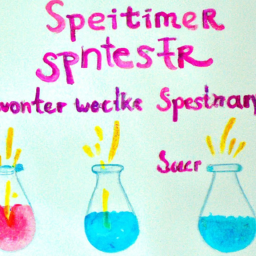 Speitimer
spntesTR
wonter weclke Spestnary
Sucr